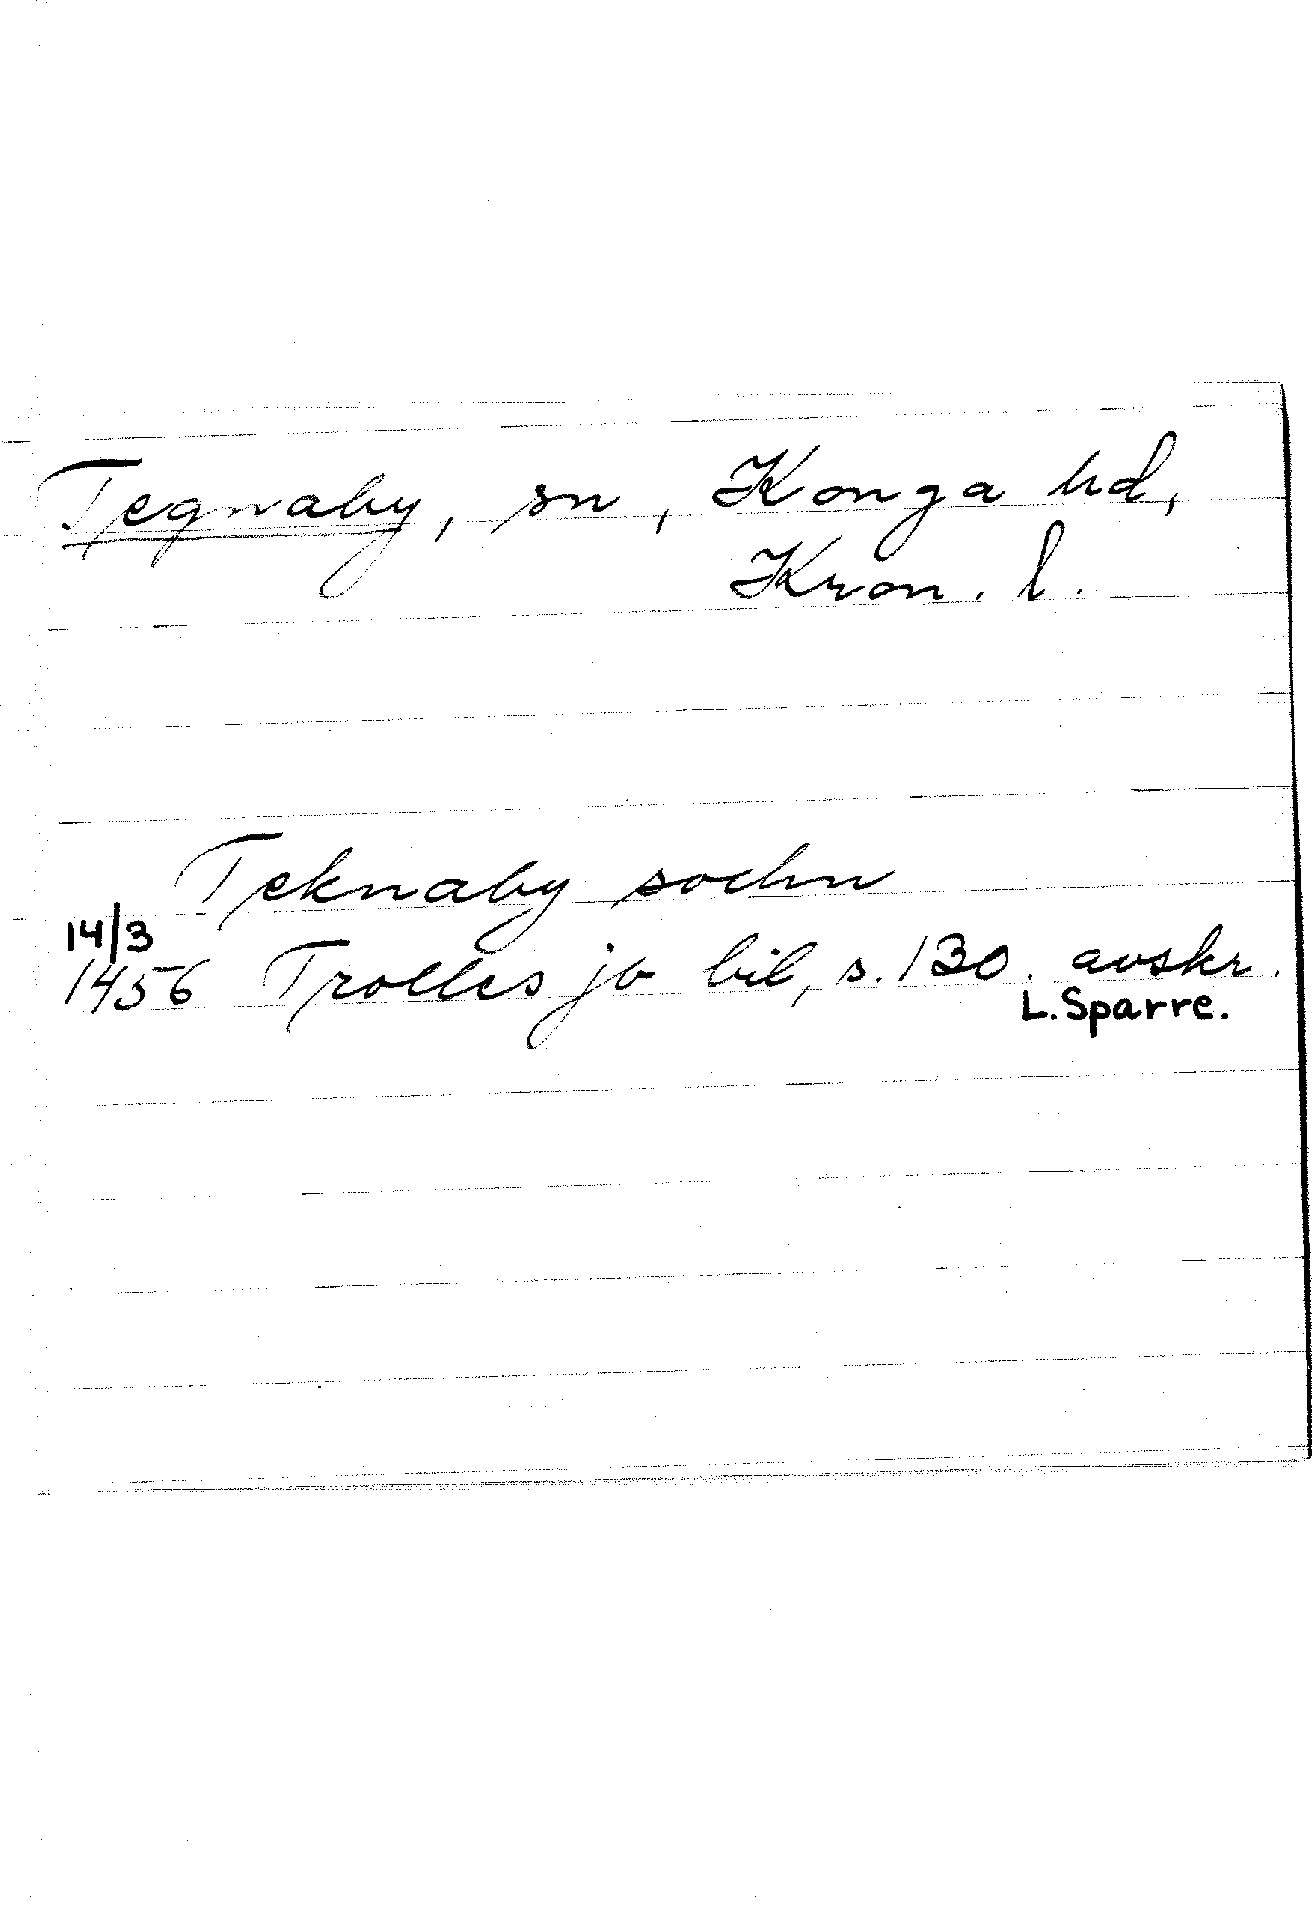 Tegnaby, sn, Konga hd,
Kron. l.
Teknaby sochn
14/3
1456 Trolles jb bil, s. 130. avskr.
L. Sparre.